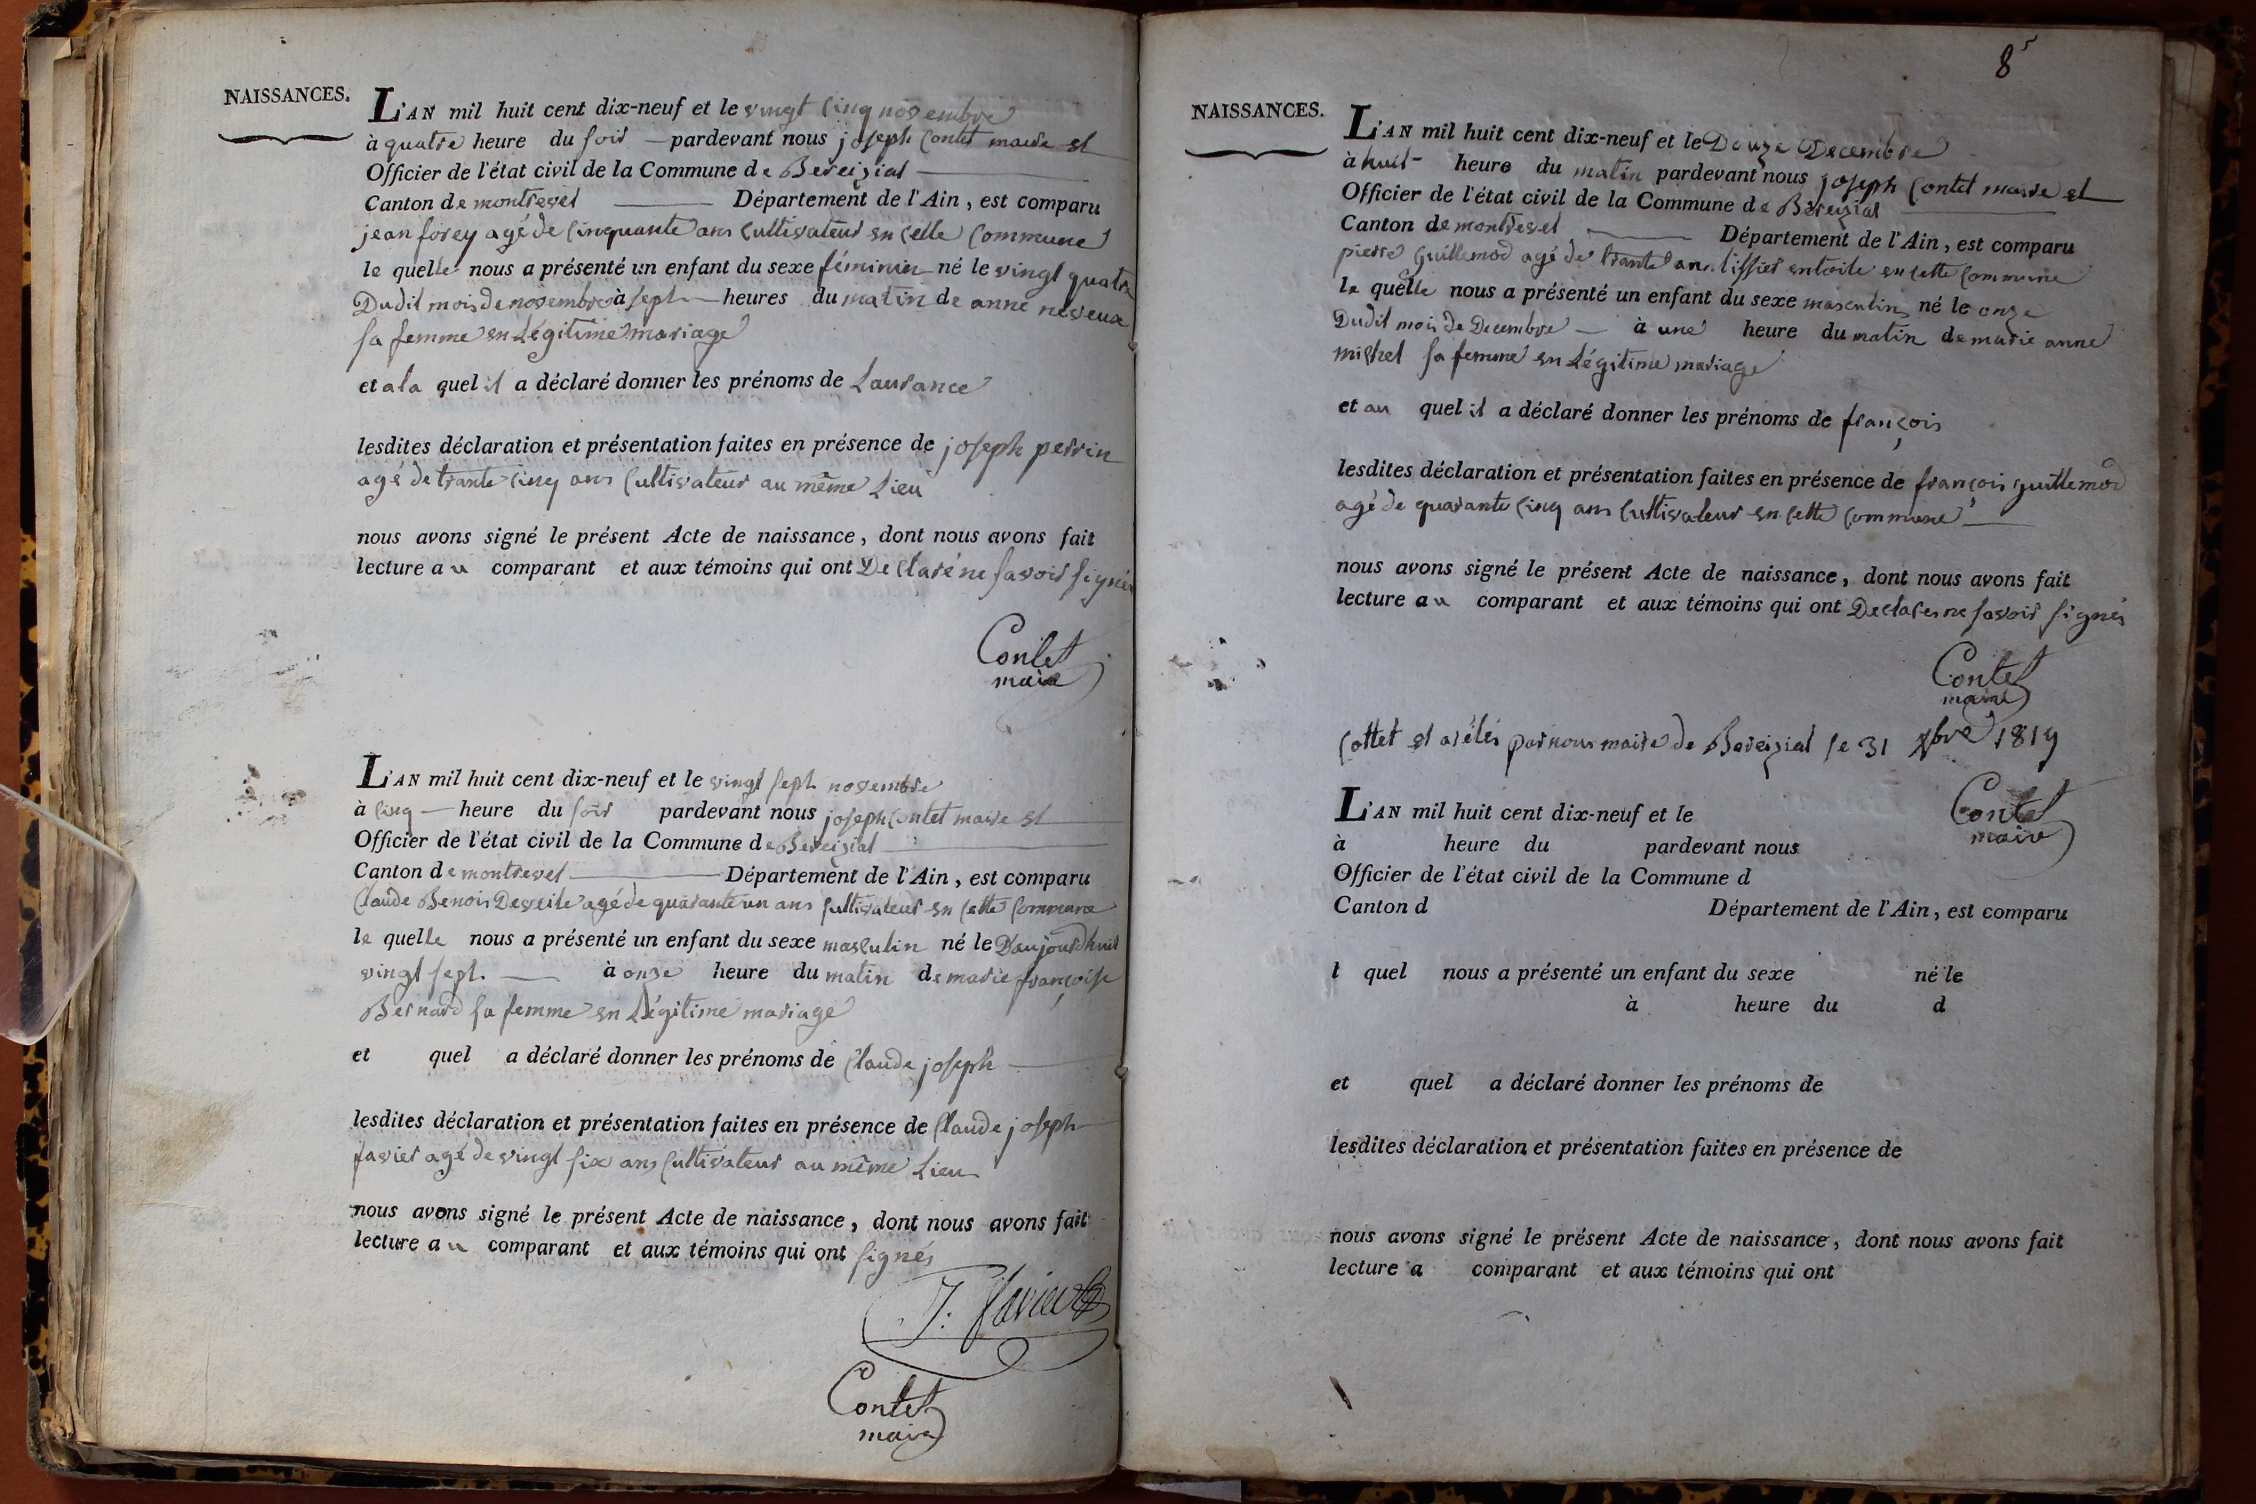 NAISSANCES.
L'AN mil huit cent dix-neuf et le vingt cinq novembre
à quatre heure du soir — pardevant nous joseph Contet maire et
Officier de l'état civil de la Commune de Bereiziat
Canton de montrevel Département de l'Ain, est comparu
jean forey agé de cinquante ans cultivateur en cette commune
le quelle nous a présenté un enfant du sexe féminin né le vingt quatre
Dudit mois de novembre à sept — heures du matin de anne neveux
sa femme en Légitime mariage
et a la quel il a déclaré donner les prénoms de Laurance
lesdites déclaration et présentation faites en présence de joseph perrin
agé de trante cinq ans cultivateur au même Lieu
nous avons signé le présent Acte de naissance, dont nous avons fait
lecture au comparant et aux témoins qui ont Declaré ne savoir signés
Contet
maire
L'AN mil huit cent dix-neuf et le vingt sept novembre
à cinq — heure du soir pardevant nous joseph Contet maire et
Officier de l'état civil de la Commune de Bereiziat
Canton de montrevel Département de l'Ain, est comparu
Claude Benois agé de quarante un ans cultivateur en cette commune
le quelle nous a présenté un enfant du sexe masculin né le D'aujourdhuit
vingt sept. — à onze heure du matin de marie françoise
Bernard sa femme en Légitime mariage
et quel a déclaré donner les prénoms de Claude joseph
lesdites déclaration et présentation faites en présence de Claude joseph
favier agé de vingt six ans cultivateur au même Lieu
nous avons signé le présent Acte de naissance, dont nous avons fait
lecture au comparant et aux témoins qui ont signés
J. favier
Contet
maire
8
NAISSANCES.
L'AN mil huit cent dix-neuf et le Douze Decembre
à huit heure du matin pardevant nous joseph Contet maire et
Officier de l'état civil de la Commune de Bereiziat
Canton de montrevel Département de l'Ain, est comparu
pierre guillemod agé de trante ans tissier entoile en cette commune
le quelle nous a présenté un enfant du sexe masculin né le onze
Dudit mois de Decembre — à une heure du matin de marie anne
michel sa femme en Légitime mariage
et au quel il a déclaré donner les prénoms de françois
lesdites déclaration et présentation faites en présence de françois guillemod
agé de quarante cinq ans cultivateur en cette commune
nous avons signé le présent Acte de naissance, dont nous avons fait
lecture au comparant et aux témoins qui ont Declares ne savoir signés
Contet
maire
Cottet et arélés par nous maire de Bereiziat le 31 Xbre 1819
Contet
maire
L'AN mil huit cent dix-neuf et le
à heure du pardevant nous
Officier de l'état civil de la Commune d
Canton d Département de l'Ain, est comparu
l quel nous a présenté un enfant du sexe né le
à heure du d
et quel a déclaré donner les prénoms de
lesdites déclaration et présentation faites en présence de
nous avons signé le présent Acte de naissance, dont nous avons fait
lecture a comparant et aux témoins qui ont